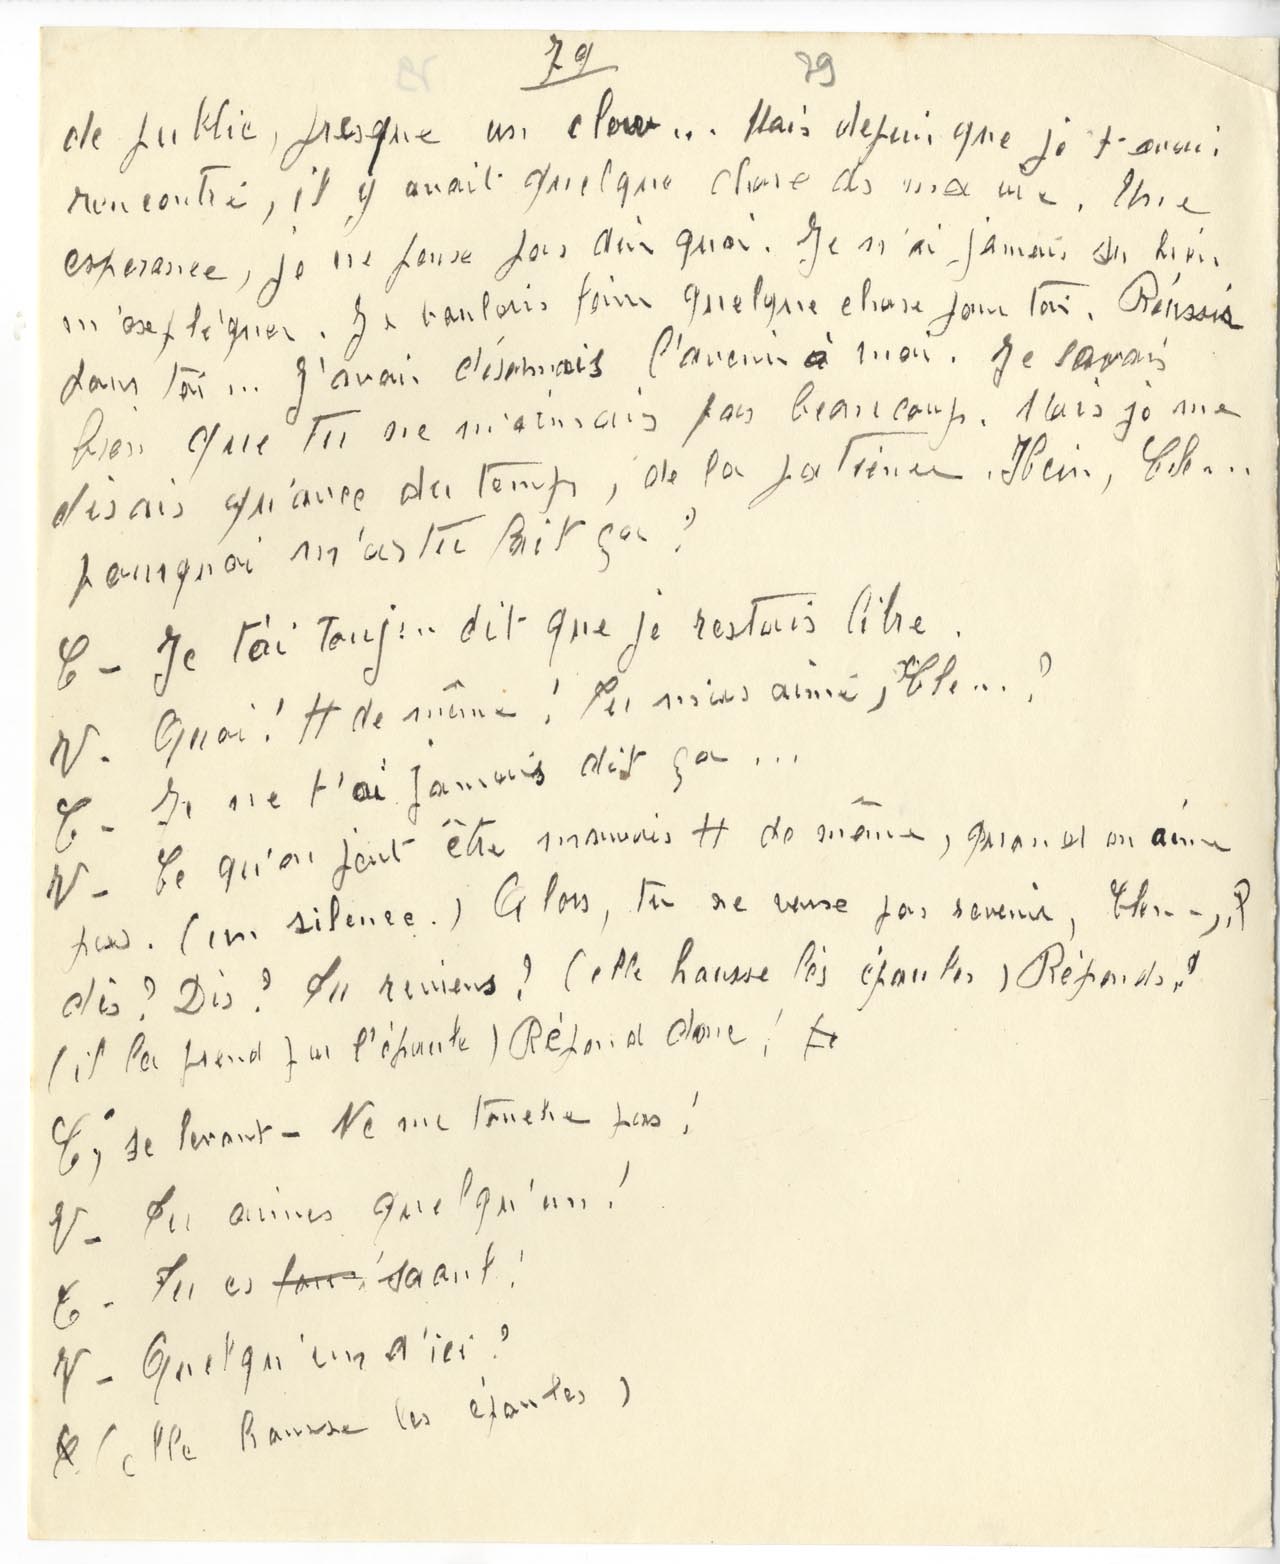 79 79
de public, presque un clown... Mais depuis que je t'avais
rencontré, il y avait quelque chose ds ma vie. Une
espérance, je ne pense pas dire quoi. Je n'ai jamais su bien
m'expliquer. Je voulais faire quelque chose pour toi. Réussir
pour toi... J'avais désormais l'avenir à moi. Je savais
bien que tu ne m'aimais pas beaucoup. Mais je me
disais qu'avec du temps, de la patience. Hein, Cle...
pourquoi m'as tu fait ça ?
C - Je t'ai toujours dit que je restais libre.
V. Quoi ! tt de même ! Tu m'as aimé, Cle... ?
C - Je ne t'ai jamais dit ça...
V - Ce qu'on peut être mauvais tt de même, quand on aime
pas. (un silence.) Alors, tu ne veux pas revenir, Cle...,
dis ? Dis ? Tu reviens ? (elle hausse les épaules) Réponds !
(il la prend par l'épaule) Répond donc !
C, se levant - Ne me touche pas !
V - Tu aimes quelqu'un !
C - Tu es
V - Quelqu'un d'ici ?
C. (elle hausse les épaules)